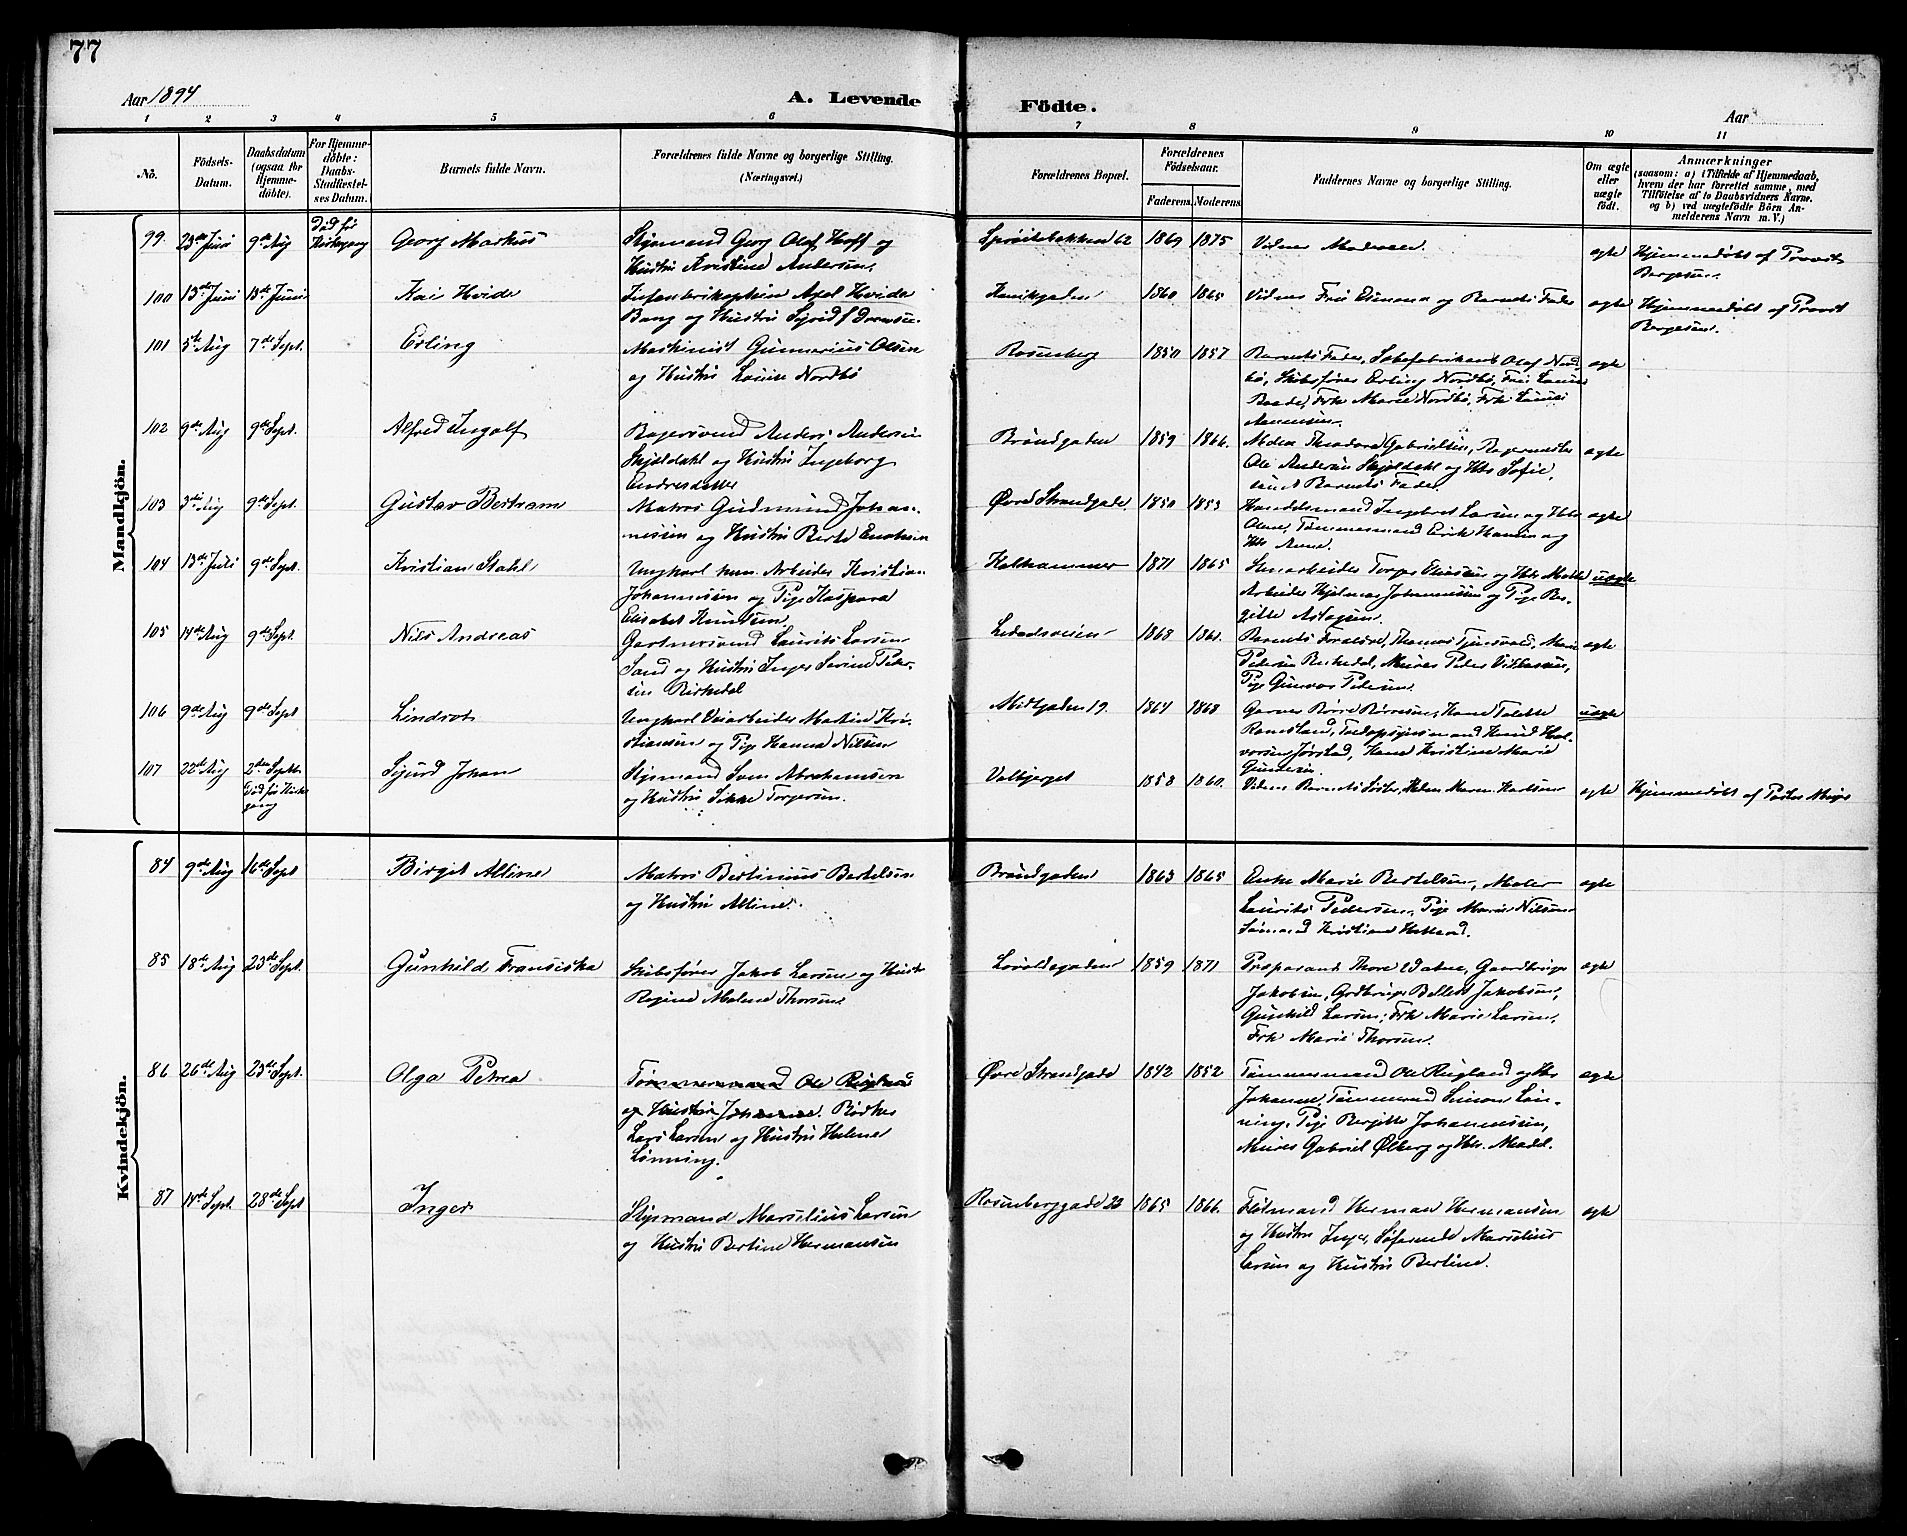 77
Aar 1894
A. Levende Födte.
Aar
1 2 3 4 5 6 7 8 9 10 11
No.
Födsels-
Datum.
Daabsdatum
(ogsaa for
Hjemme-
döbte).
For Hjemme-
döbte:
Daabs-
Stadfæstel-
ses Datum.
Barnets fulde Navn.
Forældrenes fulde Navne og borgerlige Stilling.
(Næringsvei.)
Forældrenes Bopæl.
Forældrenes
Födselsaar.
Faderens. Moderens.
Faddernes Navne og borgerlige Stilling.
Om ægte
eller
uægte
født.
Anmærkninger
(saasom: a) i Tilfælde af Hjemmedaab,
hvem der har forrettet samme, med
Tilföielse af to Daabsvidners Navne.
og b) ved uægtefödte Börn An-
melderens Navn m. V.)
Mandkjön.
99. 23de Juni 9de Aug Død før Kirkegang Georg Markus
Styrmand Georg Olaf Hoff og
Hustru Kristine Andersen.
62 1869 1875 Vidner ægte
Hjemmedøbt af Provst
Børgesen.
100 13de Juni 18de Juni Kai Hvide
Axel Hvide
Bang og Hustru Sigrid
Kanikgaden 1860 1865 Vidner og Barnets Fader ægte
Hjemmedøbt af Provst
Børgesen.
101 5te Aug 7de Sept. Erling
Maskinist Gunnerius Olsen
og Hustru Louise Nordbö
Rosenberg 1850 1857 Barnets Fader, Olaf Nord-
bö, Skibsfører Erling Nordbö,
Frk Marie Nordbö, Frk
ægte
102 9de Aug 9de Sept. Alfred Ingolf
Bagersvend Anders Andersen
Skjeldahl og Hustru Ingeborg
Endresdatter
Bröndgaden 1859 1866. Theodora Gabrielsen, Bagermester
Ole Andersen Skjeldahl og Hst Sofie,
samt Barnets Fader.
ægte
103 3die Aug 9de Sept. Gustav Bertram
Matros Gudmund Johan-
nessen og Hustru Berte Enoksen
Øvre Strandgade 1850 1853 Handelsmand Ingebret Larsen og Hst
Tømmermand Erik Hansen og
Hst Anne.
ægte
104 13de Juli 9de Sept. Kristian Stahl
Ungkarl Arbeider Kristian
Johannessen og Pige Kaspara
Elisabet Knudsen.
Kalhammer 1871 1865 Torger Eliassen og Hst Mette
Arbeider Hjelmar Johannessen og Pige Ber-
gitte Aslagsen.
uægte
105 14de Aug 9de Sept. Nils Andreas
Gartnersvend Laurits Larsen
Sand og Hustru Inger Serine Peder-
sen Birkedal
1868 1861. Barnets Forældre, Thomas Tjensvold, Marie
Pedersen Birkedal, Murer Peder
Pige Gunvor Pedersen.
ægte
106 9de Aug 9de Sept Lindrot
Ungkarl Veiarbeider Martin Kri-
stiansen og Pige Hanna Nilsen
Midtgaden 19. 1864 1868 Garver Børre Børresen, Kone Talette
Ramsland, Knud Hal-
vorsen Jørstad, Kone Kristine Marie
Gundersen.
uægte
107 22de Aug 2den Septbr Død før Kirke-
gang Sigurd Johan
Styrmand Sam Abrahamsen
og Hustru Sikke Torgersen.
Valbjerget 1858 1860. Vidner Barnets Søster, Karlsen ægte
Hjemmedøbt af Pastor
Kvindekjön.
84 9de Aug 16de Sept Birgit Alline
Matros Bertinius Bertelsen
og Hustru Alline.
Bröndgaden 1863 1865 Enke Marie Bertelsen, Maler
Laurits Pedersen, Pige Marie Nilsen
Sömand Kristian
ægte
85 18de Aug 23de Sept. Gunhild Fransiska
Skibsfører Jakob Larsen og Hustru
Regine Malene Thorsen.
Løvoldsgaden 1859 1871 Præparant Thore Gaardbruger
Jakobsen, Jakobsen,
Gunhild Larsen, Frk Marie Larsen,
Frk Marie Thorsen.
ægte
86 26de Aug 23de Sept. Olga Petrea
Tømmermand Ole Rugland
og Hustru Johanne. Bødker
Lars Larsen og Hustru Helene
Lønning.
Øvre Strandgade 1842 1852 Tømmermand Ole Rugland og Hst
Johanne, Tømmermand Simon Løn-
ning, Pige Bergitte Johannessen,
Murer Gabriel Ølberg og Hst. Madel.
ægte
87 14de Sept. 28de Sept Inger
Styrmand Marselius Larsen
og Hustru Bertine Hermansen
Rosenberggade 23 1865 1866. Feilmand Herman Hermansen
og Hustru Inger, Søfarende Marselius
Larsen og Hustru Bertine.
ægte